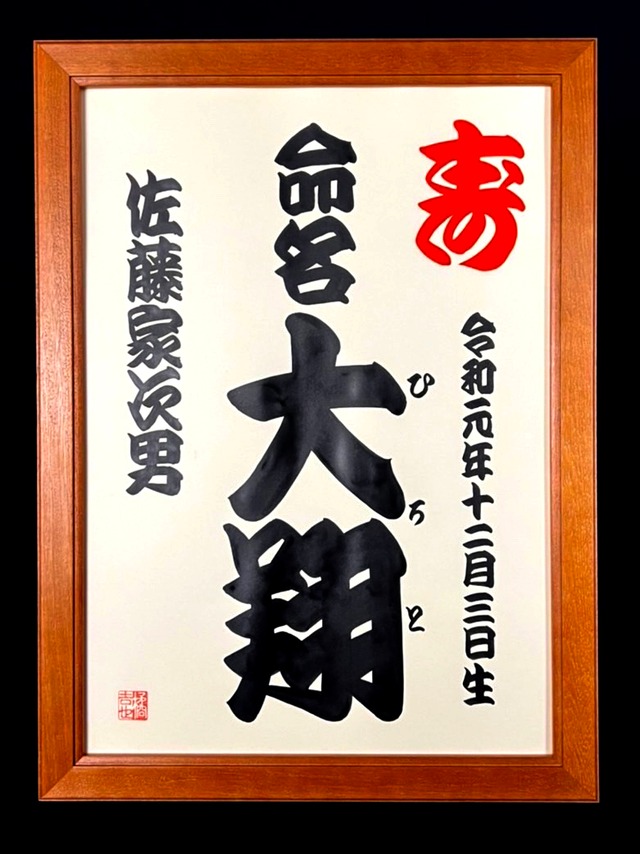 寿
令和元年十二月三日生
命名
大翔
ひろと
佐藤家次男